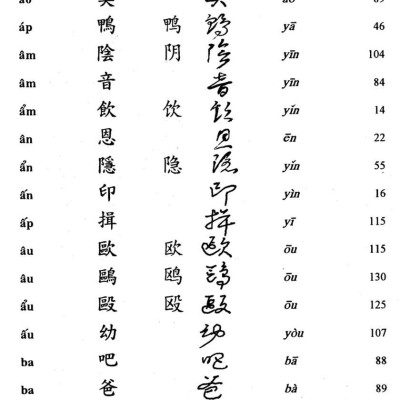 áp 鴨 鸭 yā 46
âm 陰 阴 陰 yīn 104
âm 音 音 yīn 84
ẩm 飲 饮 yǐn 14
ân 恩 恩 ēn 22
ẩn 隱 隐 yǐn 55
ấn 印 印 yìn 16
ấp 揖 揖 yī 115
âu 歐 欧 歐 ōu 115
âu 鷗 鸥 ōu 130
ẩu 毆 殴 ōu 125
ấu 幼 幼 yòu 107
ba 吧 吧 bā 88
ba 爸 爸 bà 89